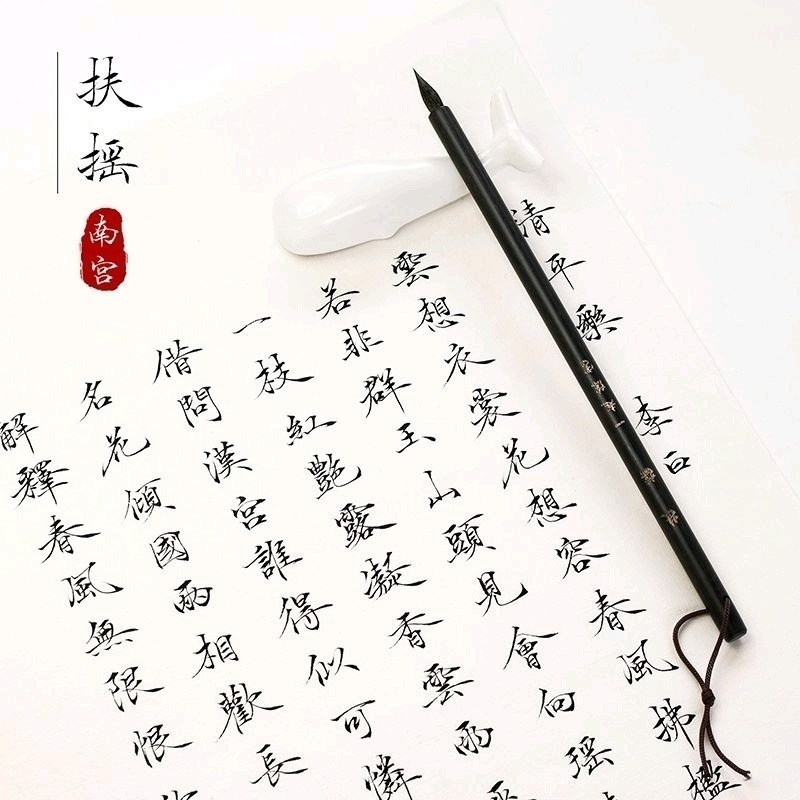 扶摇
南宫
清平樂 李白
雲想衣裳花想容春風拂檻
若非群玉山頭見會向瑤
一枝紅艷露凝香雲雨
借問漢宮誰得似可憐
名花傾國兩相歡長
解釋春風無限恨